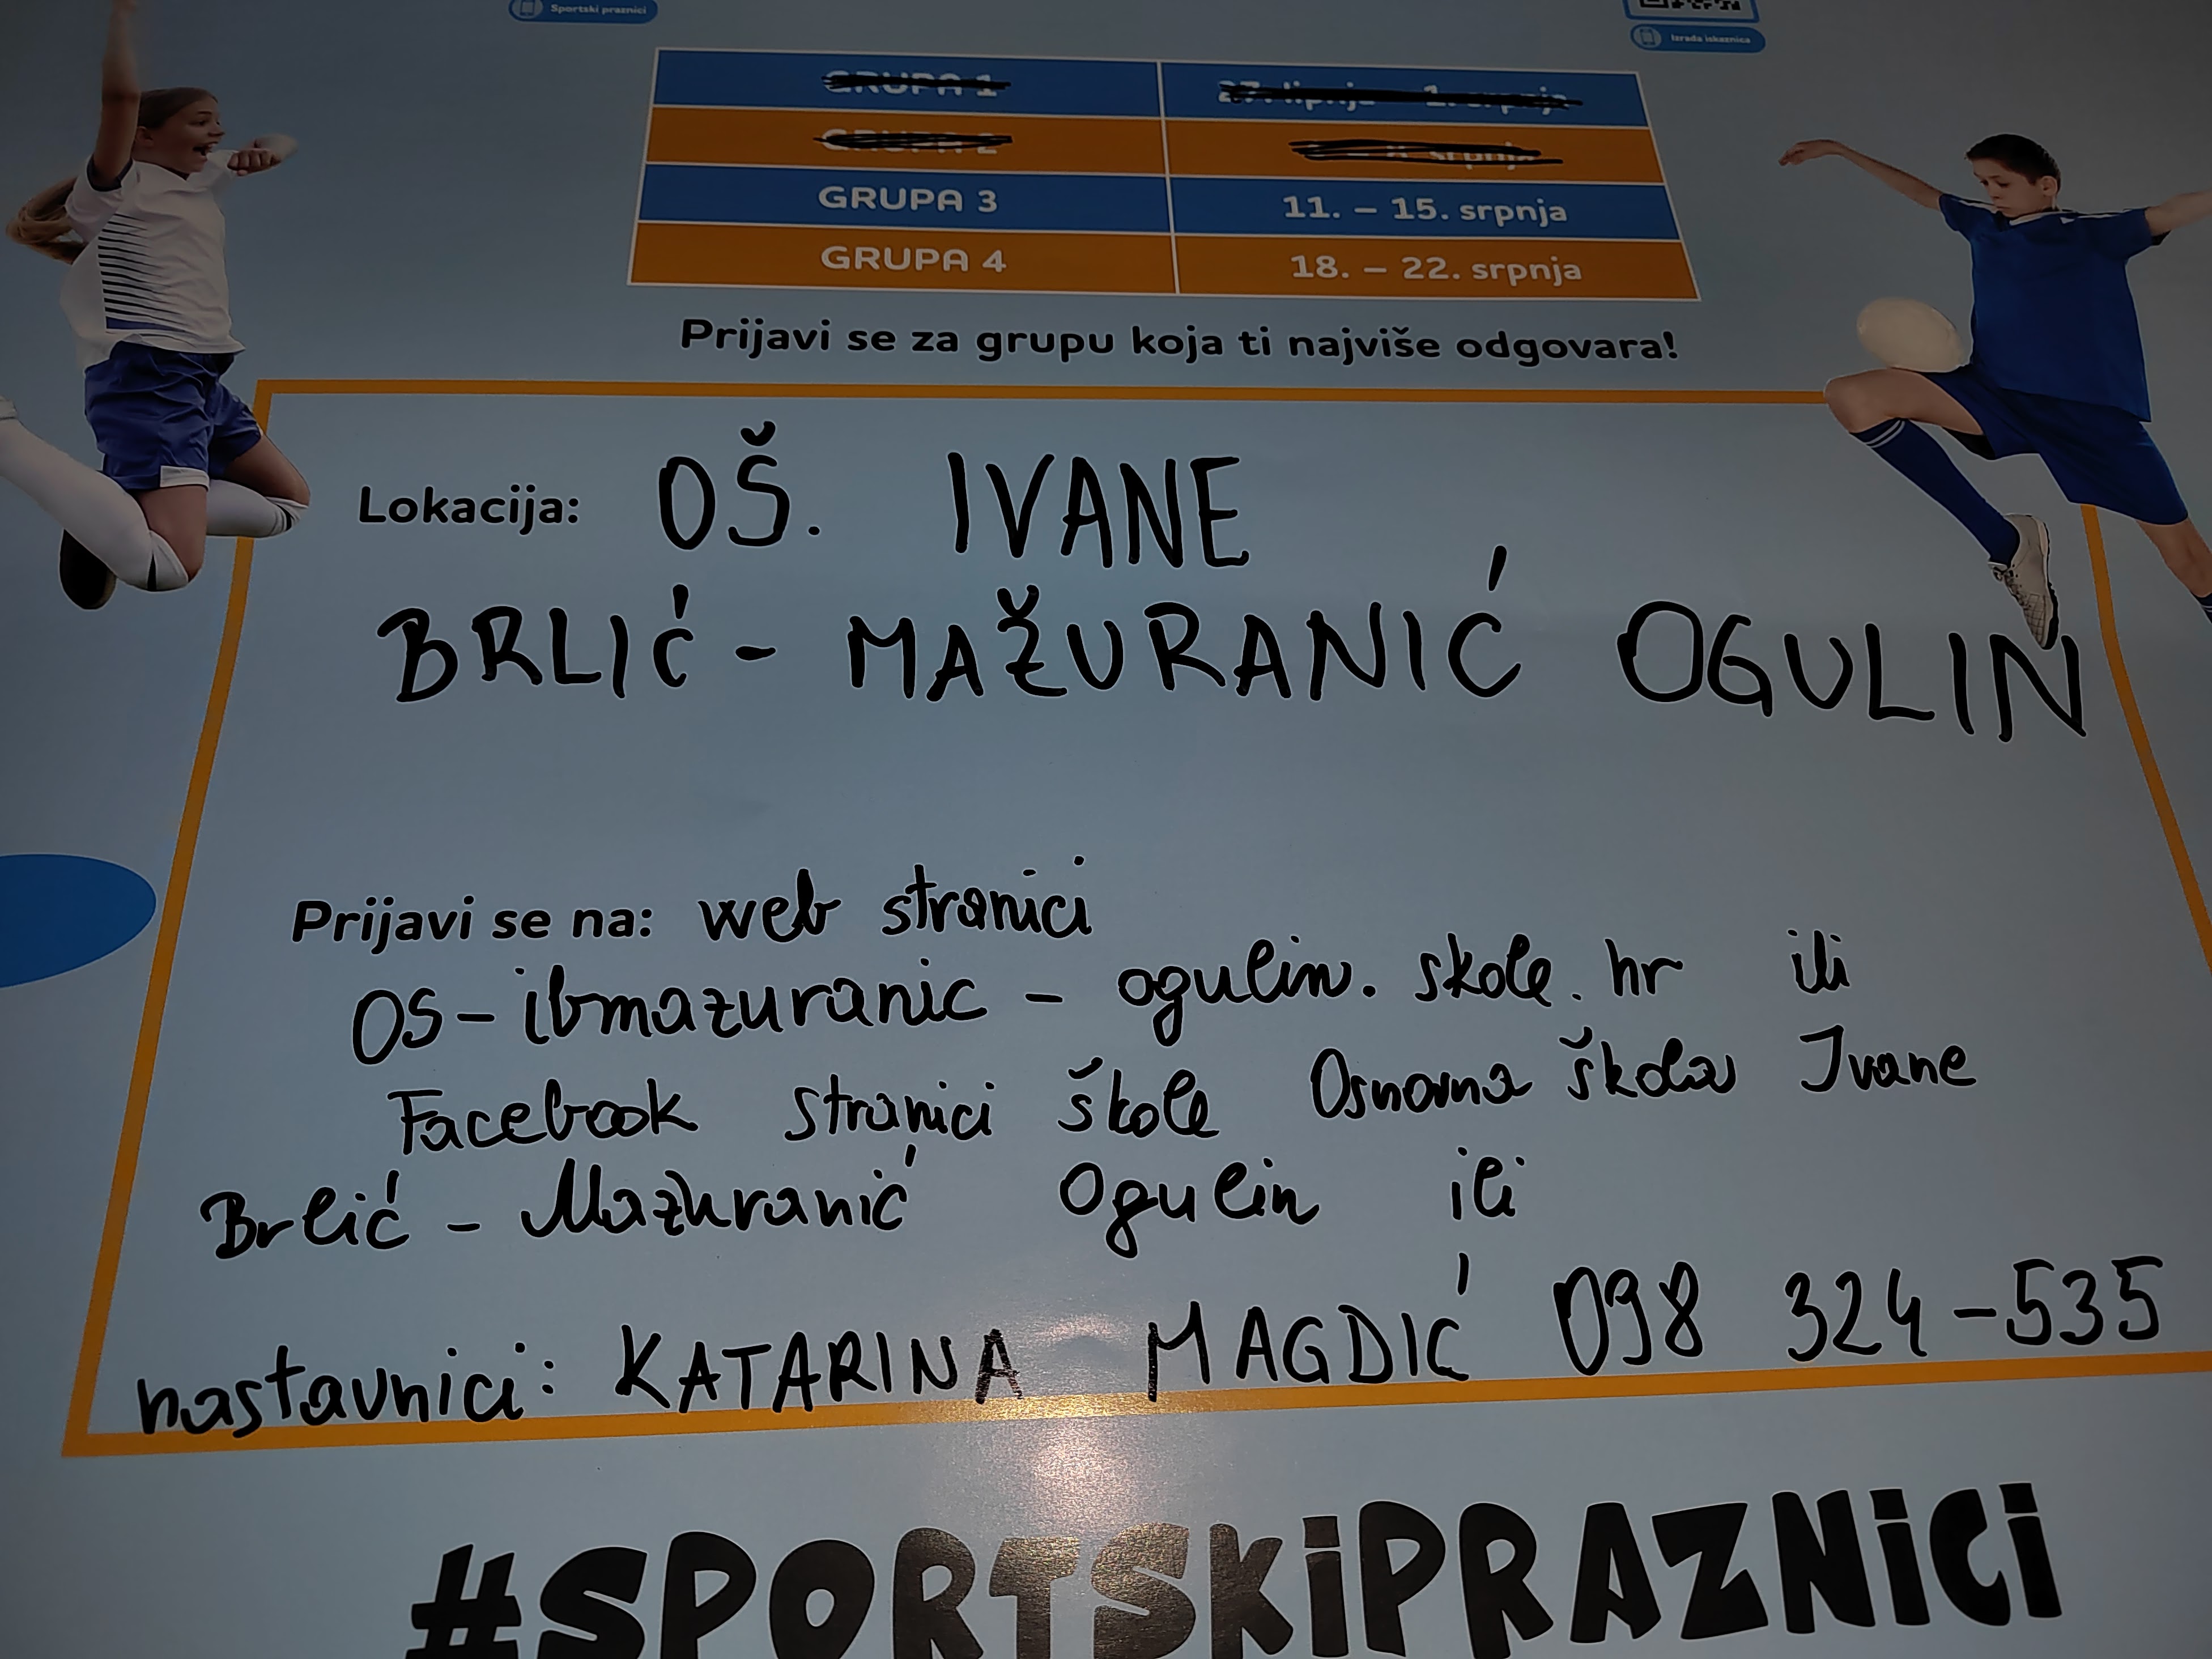 Sportski praznici
Izrada iskaznica
GRUPA 1 27. lipnja – 1. srpnja
GRUPA 2 8. srpnja
GRUPA 3 11. – 15. srpnja
GRUPA 4 18. – 22. srpnja
Prijavi se za grupu koja ti najviše odgovara!
Lokacija: OŠ. IVANE
BRLIĆ - MAŽURANIĆ OGULIN
Prijavi se na: web stranici
OS-ibmazuranic - ogulin. skole. hr ili
Facebook stranici škole Osnovna škola Ivane
Brlić - Mažuranić Ogulin ili
nastavnici: KATARINA MAGDIĆ 098 324-535
#SPORTSKiPRAZNiCi